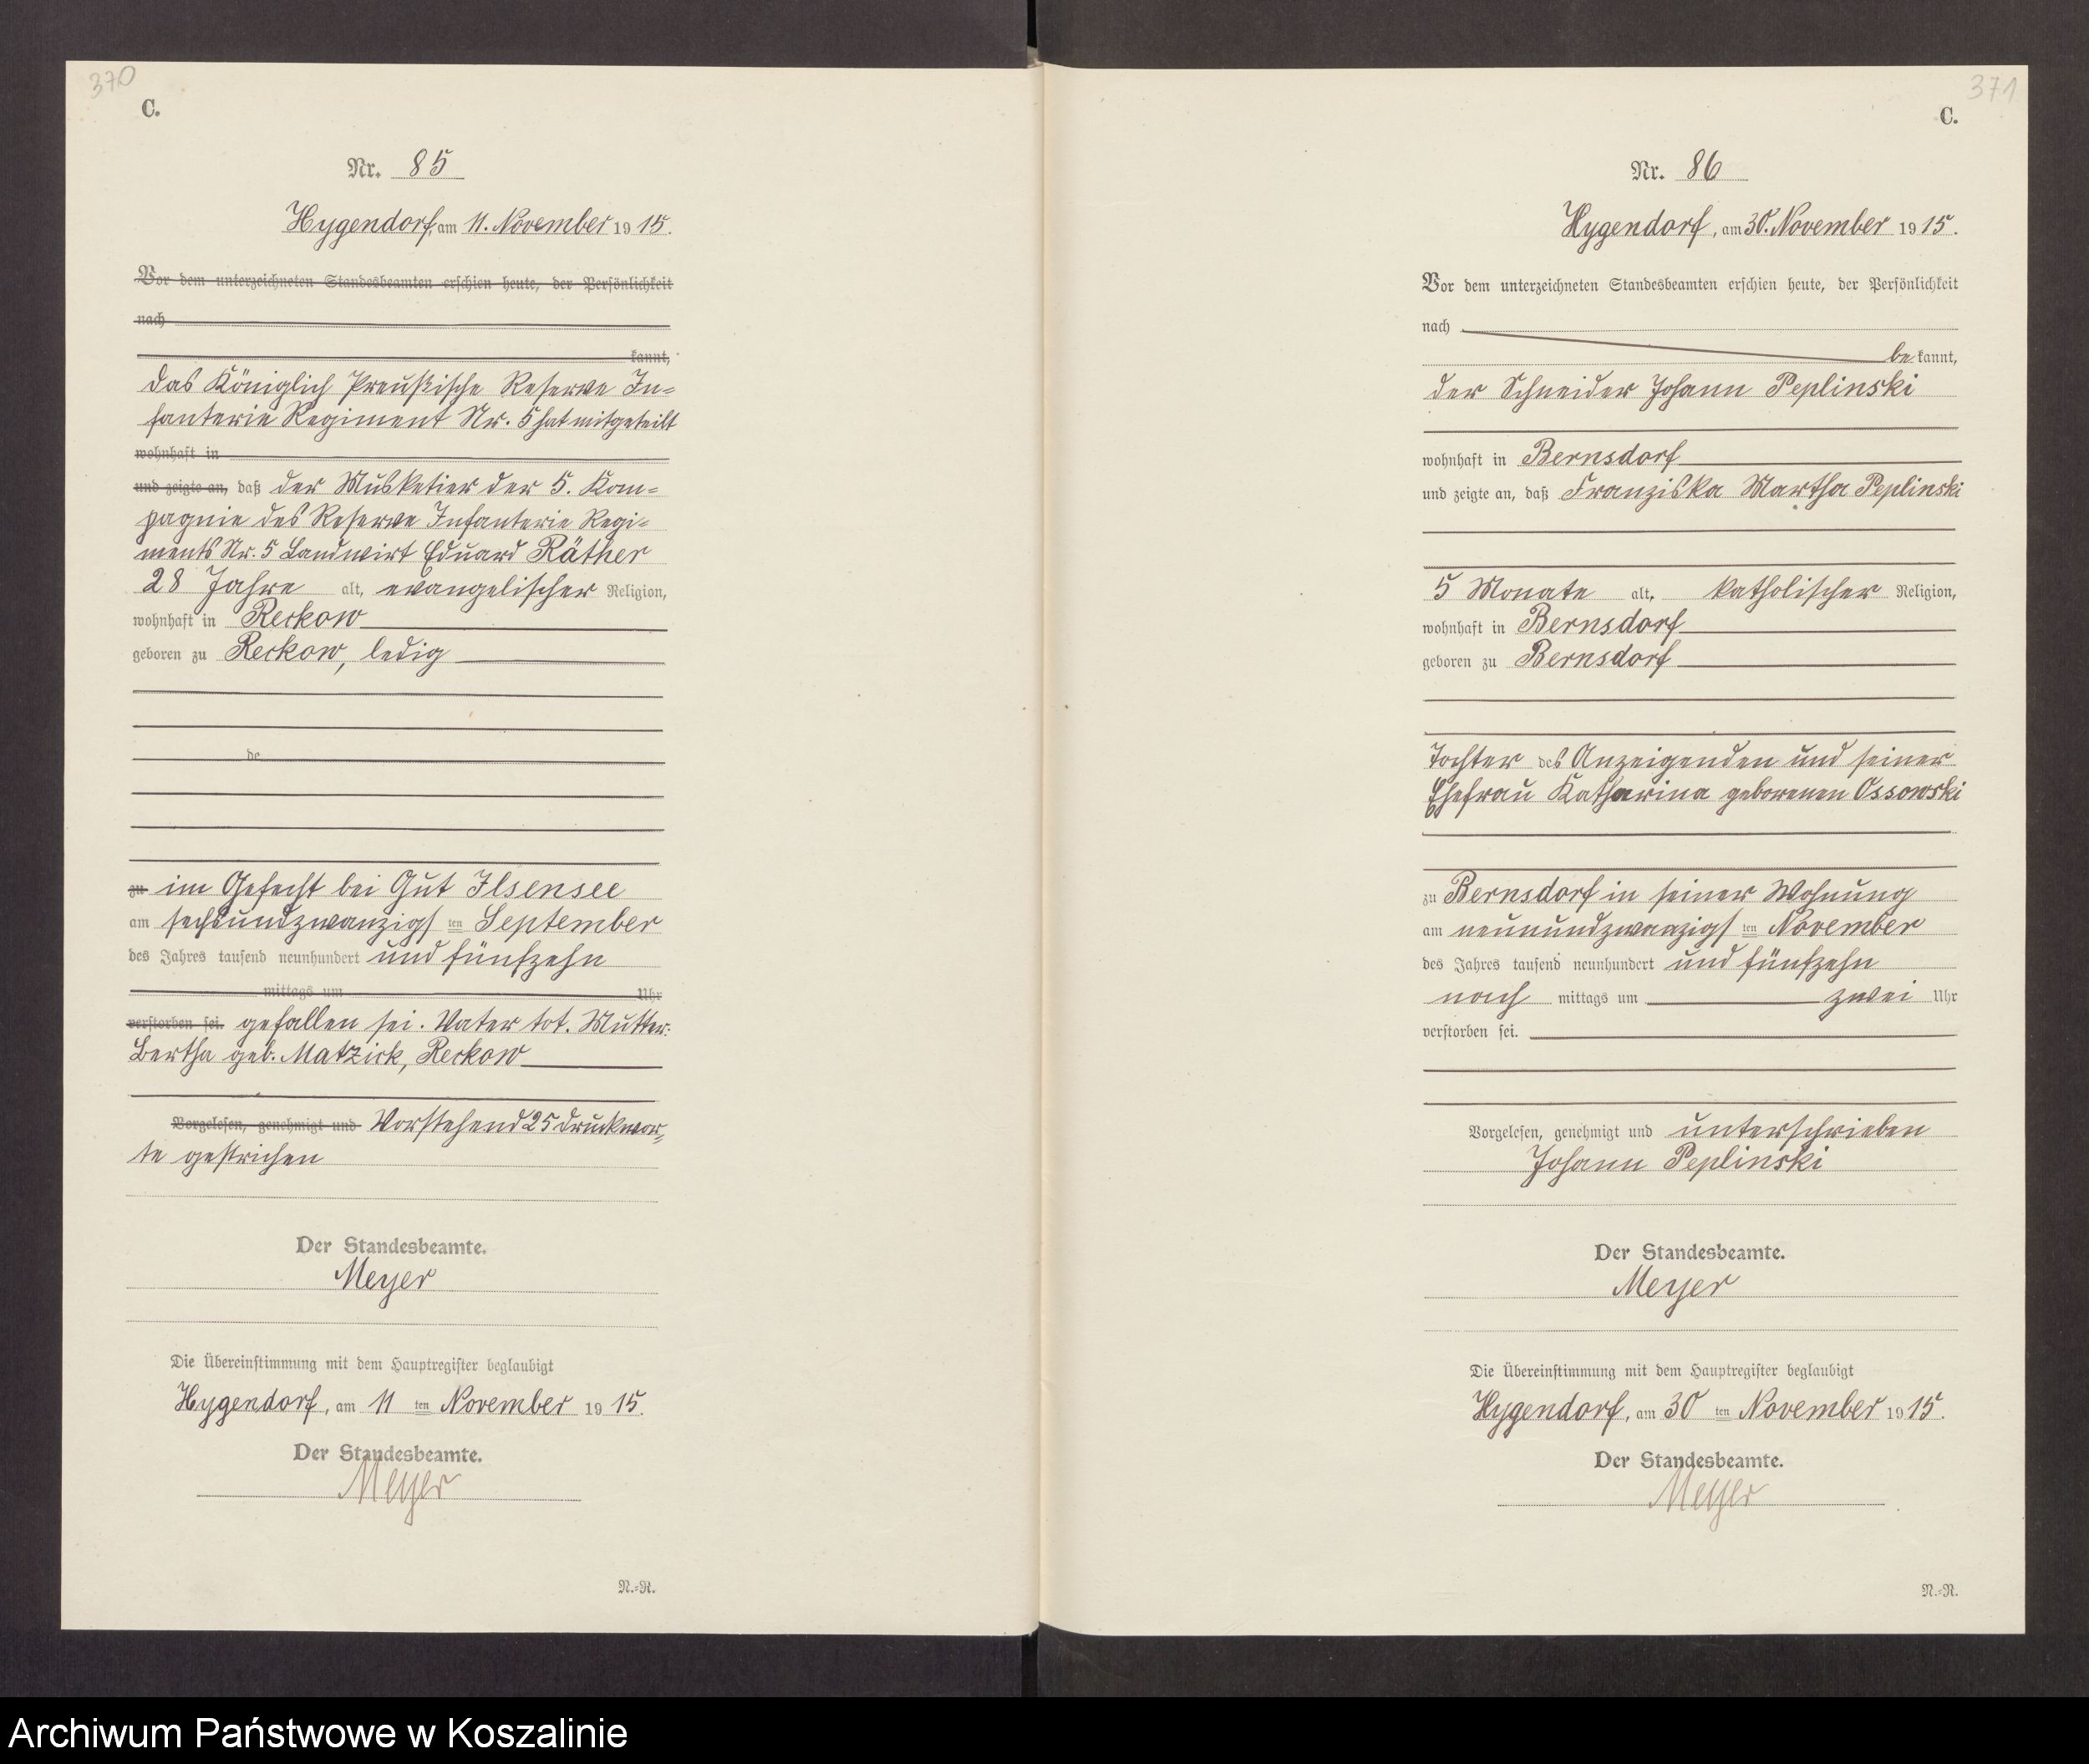 370
C.
Nr. 85
Hygendorf, am 11. November 1915.
Vor dem unterzeichneten Standesbeamten erschien heute, der Persönlichkeit
nach
kannt,
das Königlich Preußische Reserve In=
fanterie Regiment Nr. 5 hat mitgeteilt
wohnhaft in
und zeigte an, daß der Musketier der 5. Kom=
pagnie des Reserve Infanterie Regi=
ments Nr. 5 Landwirt Eduard Räther
28 Jahre alt, evangelischer Religion,
wohnhaft in Reckow
geboren zu Reckow, ledig
de
zu im Gefecht bei Gut Ilsensee
am sechsundzwanzigsten September
des Jahres tausend neunhundert und fünfzehn
mittags um Uhr
verstorben sei. gefallen sei. Vater tot. Mutter:
Bertha geb. Matzick, Reckow
Vorgelesen, genehmigt und Vorstehend 25 Druckwor=
te gestrichen
Der Standesbeamte.
Meyer
Die Übereinstimmung mit dem Hauptregister beglaubigt
Hygendorf, am 11 ten November 1915.
Der Standesbeamte.
Meyer
N.=R.
371
C.
Nr. 86
Hygendorf, am 30. November 1915.
Vor dem unterzeichneten Standesbeamten erschien heute, der Persönlichkeit
nach
be kannt,
der Schneider Johann Peplinski
wohnhaft in Bernsdorf
und zeigte an, daß Franziska Martha Peplinski
5 Monate alt, katholischer Religion,
wohnhaft in Bernsdorf
geboren zu Bernsdorf
Tochter des Anzeigenden und seiner
Ehefrau Katharina geborenen Ossowski
zu Bernsdorf in seiner Wohnung
am neunundzwanzigsten November
des Jahres tausend neunhundert und fünfzehn
nach mittags um zwei Uhr
verstorben sei.
Vorgelesen, genehmigt und unterschrieben
Johann Peplinski
Der Standesbeamte.
Meyer
Die Übereinstimmung mit dem Hauptregister beglaubigt
Hygendorf, am 30 ten November 1915.
Der Standesbeamte.
Meyer
N.=R.
Archiwum Państwowe w Koszalinie